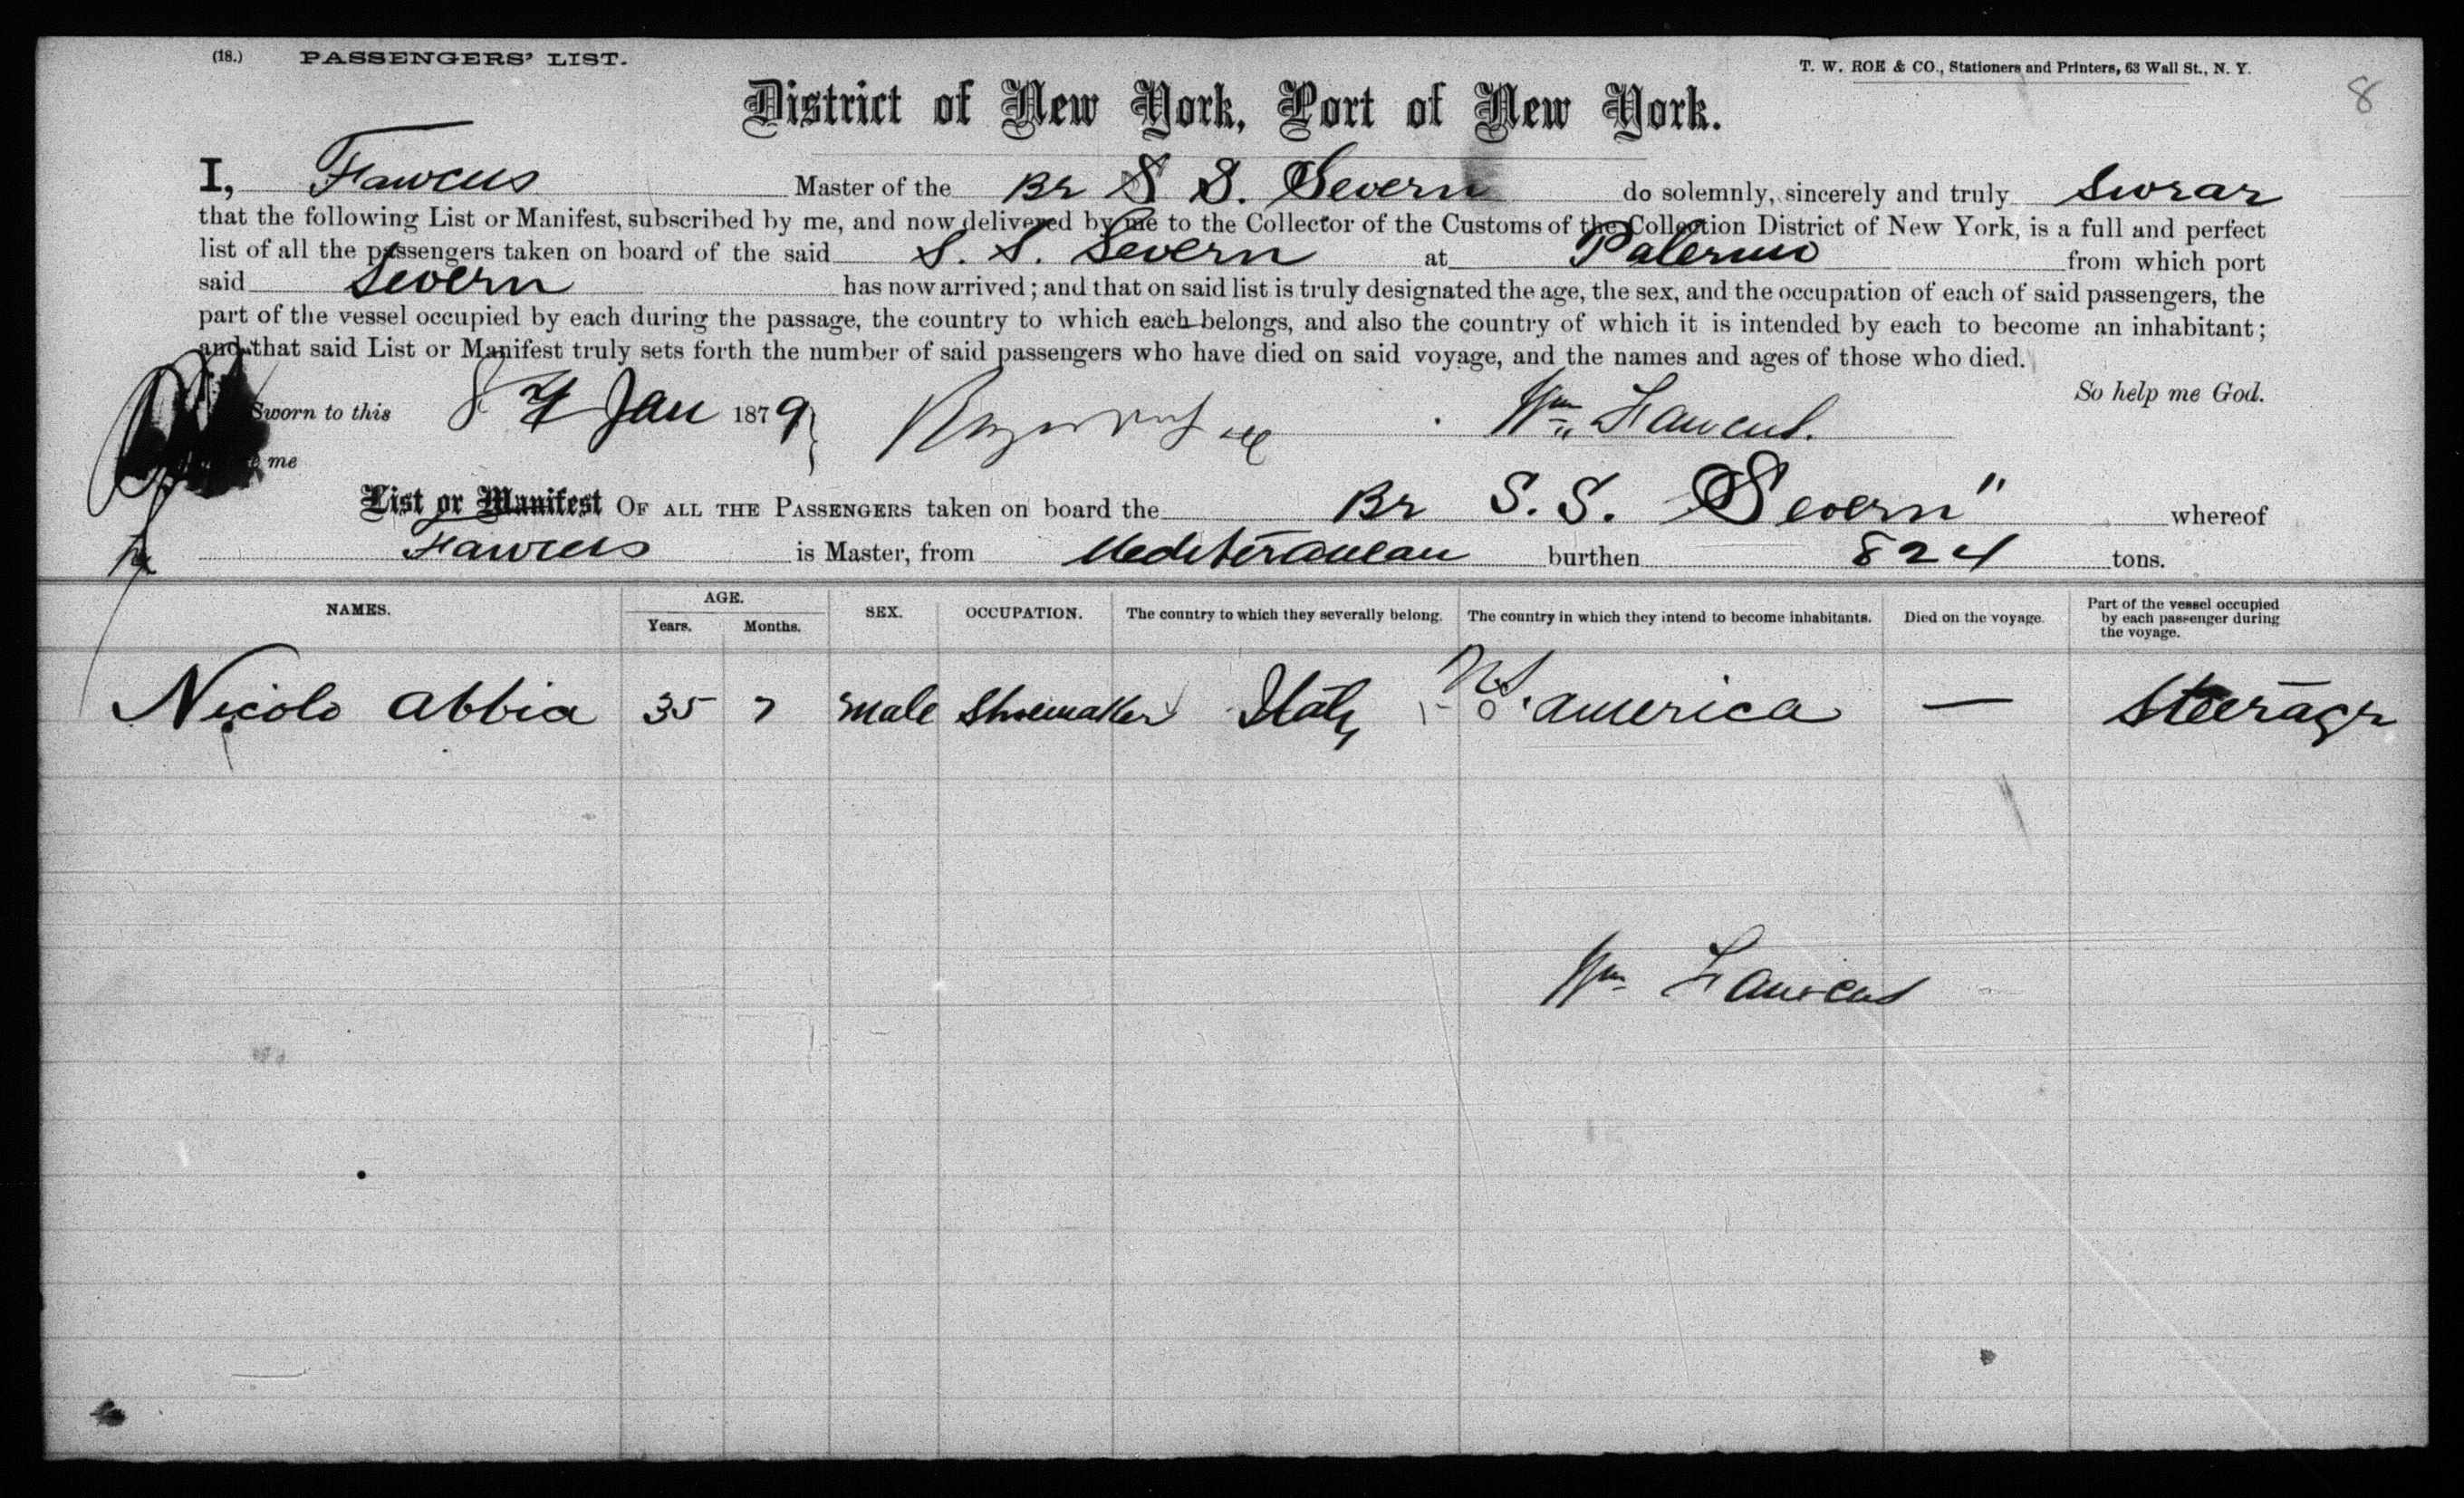 (18.) PASSENGERS' LIST.
T. W. ROE & CO., Stationers and Printers, 63 Wall St., N. Y.
8
District of New York, Port of New York.
I, Fawcus Master of the Br S S. Severn do solemnly, sincerely and truly swear
that the following List or Manifest, subscribed by me, and now delivered by me to the Collector of the Customs of the Collection District of New York, is a full and perfect
list of all the passengers taken on board of the said S. S. Severn at Palermo from which port
said Severn has now arrived; and that on said list is truly designated the age, the sex, and the occupation of each of said passengers, the
part of the vessel occupied by each during the passage, the country to which each belongs, and also the country of which it is intended by each to become an inhabitant;
and that said List or Manifest truly sets forth the number of said passengers who have died on said voyage, and the names and ages of those who died.
So help me God.
Sworn to this Jan 1879 Wm Fawcus.
me
List or Manifest OF ALL THE PASSENGERS taken on board the Br S. S. Severn" whereof
Fawcus is Master, from Mediteranean burthen 824 tons.
NAMES. AGE. Years. Months. SEX. OCCUPATION. The country to which they severally belong. The country in which they intend to become inhabitants. Died on the voyage. Part of the vessel occupied by each passenger during the voyage.
Nicolo Abbia 35 7 Male Shoemaker Italy America — Steerage
Wm Fawcus